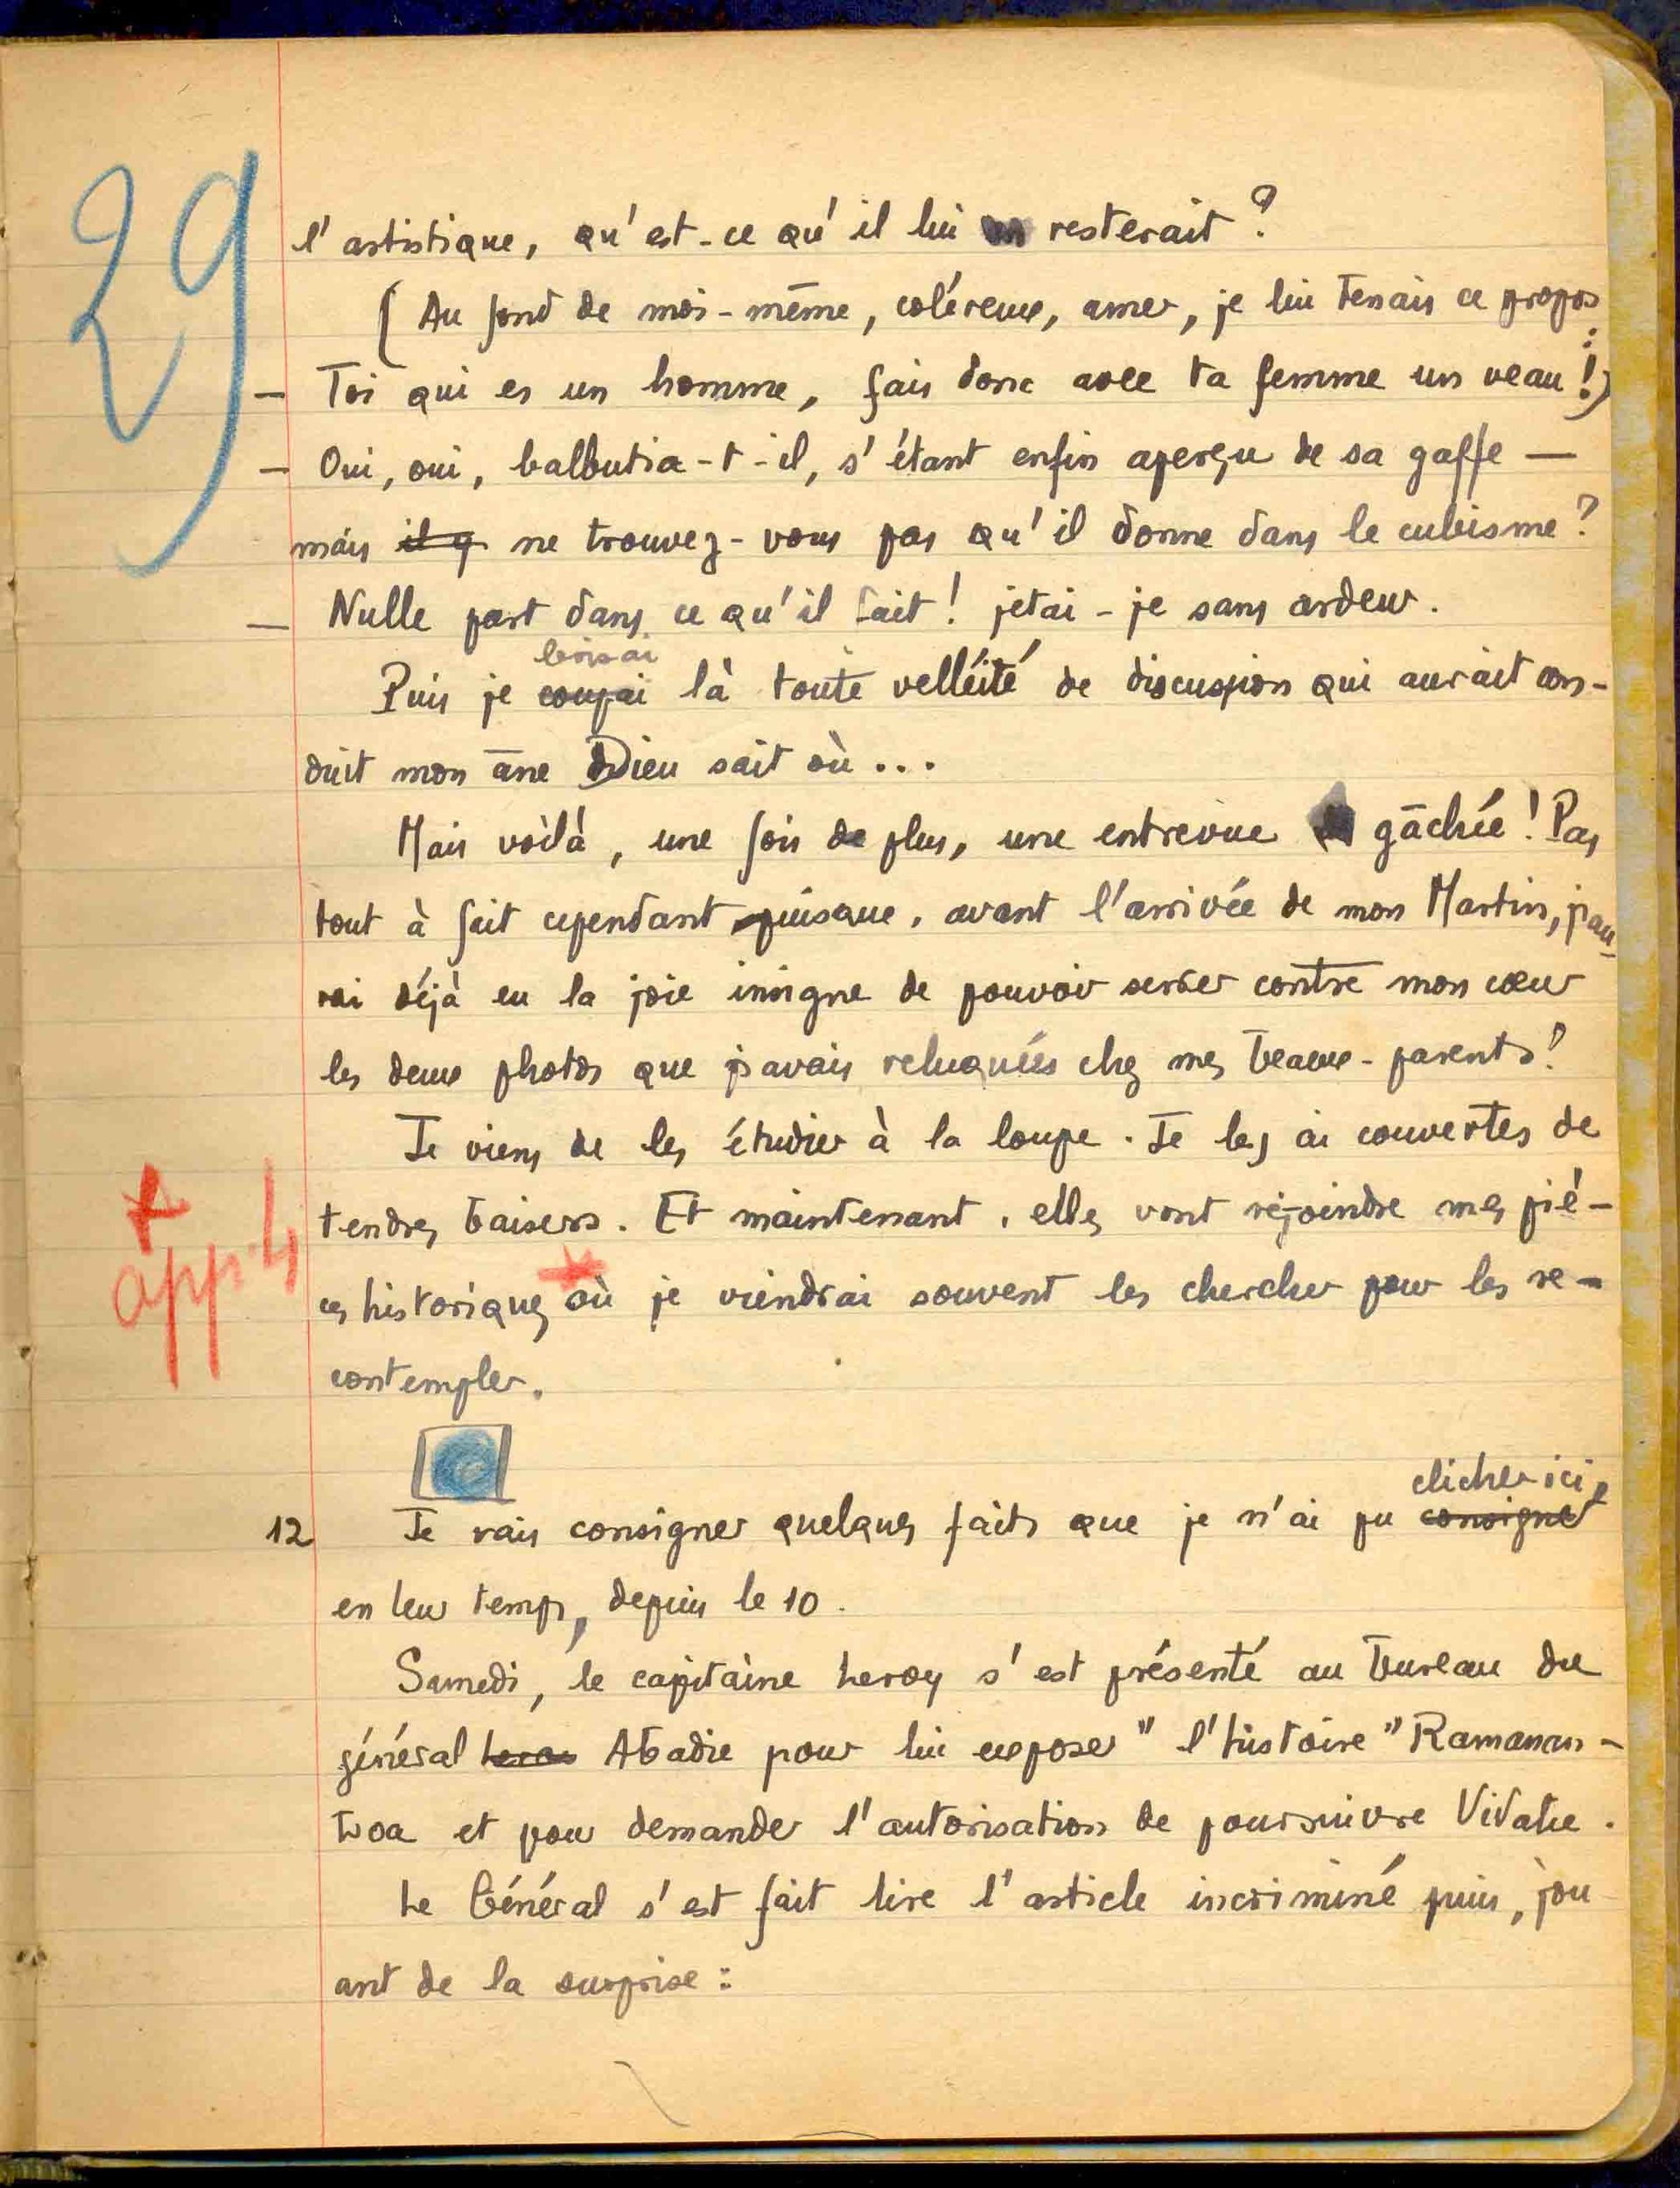 29
l'artistique, qu'est-ce qu'il lui resterait ?
( Au fond de moi-même, coléreux, amer, je lui tenais ce propos :
— Toi qui es un homme, fais donc avec ta femme un veau !)
— Oui, oui, balbutia-t-il, s'étant enfin aperçu de sa gaffe —
mais il q ne trouvez-vous pas qu'il donne dans le cubisme ?
— Nulle part dans ce qu'il fait ! jetai-je sans ardeur.
brisai
Puis je coupai là toute velléité de discussion qui aurait con-
duit mon âne Dieu sait où ...
Mais voilà, une fois de plus, une entrevue gâchée ! Pas
tout à fait cependant puisque, avant l'arrivée de mon Martin, j'au-
rai déjà eu la joie insigne de pouvoir serrer contre mon cœur
les deux photos que j'avais reluquées chez mes beaux-parents !
Je viens de les étudier à la loupe. Je les ai couvertes de
tendres baisers. Et maintenant, elles vont rejoindre mes piè-
app. 4
ces historiques où je viendrai souvent les chercher pour les re-
contempler.
clicher ici,
12 Je vais consigner quelques faits que je n'ai pu consigner
en leur temps, depuis le 10.
Samedi, le capitaine Leroy s'est présenté au bureau du
général Leroy Abadie pour lui exposer " l'histoire " Ramanan-
tsoa et pour demander l'autorisation de poursuivre Vidalie.
Le Général s'est fait lire l'article incriminé puis, jou
ant de la surprise :